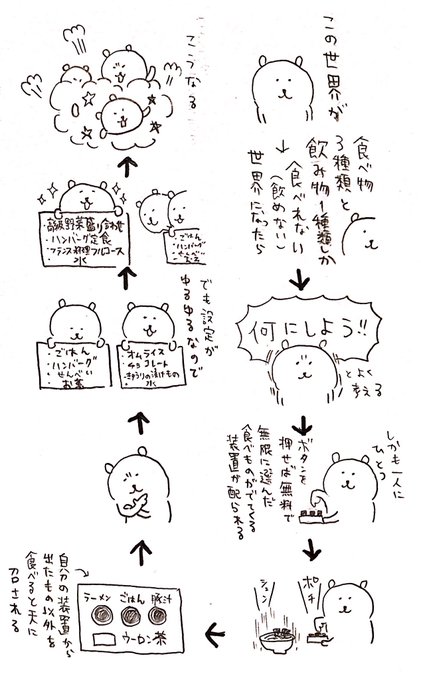 この世界が
食べ物
3種類と
飲み物1種類しか
食べれない
(飲めない)
世界になったら
何にしよう!!
とよく
考える
しかも一人に
ひとつ
ボタンを
押せば無料で
無限に選んだ
食べものがでてくる
装置が配られる
ポチ
シュン
ラーメン
ごはん
豚汁
ウーロン茶
自分の装置から
出たもの以外を
食べると天に
召される
でも設定が
ゆるゆるなので
・ごはん
・ハンバーグ
・せんべい
お茶
・オムライス
・チョコレート
・きゅうりの漬けもの
・水
・高級野菜盛り合わせ
・ハンバーグ定食
・フランス料理フルコース
・水
・ごはん
・ハンバーグ
・せんべい
お茶
こうなる